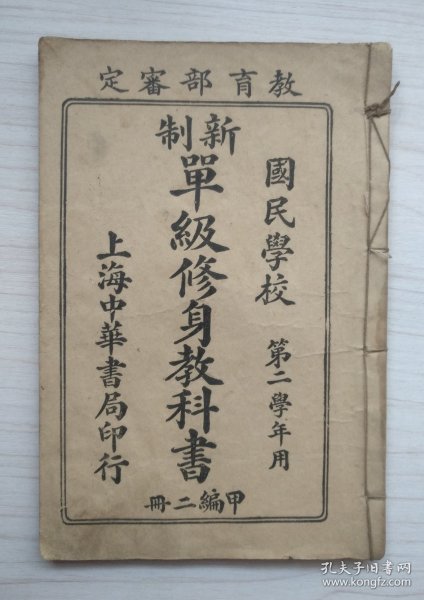 教育部審定
國民學校 第二學年用
新制
單級修身教科書
甲編二冊
上海中華書局印行
孔夫子旧书网
www.kongfz.com